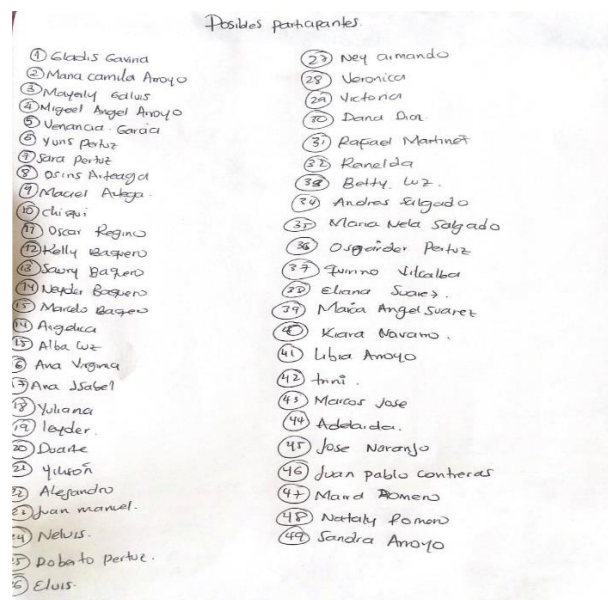 Posibles participantes.
1 Gladis Gaviria
2 Maria camila Arroyo
3 Mayerly Galuis
4 Migeel Angel Arroyo
5 Venancia Garcia
6 Yuris Pertuz
7 Sara Pertuz
8 Osiris Arteaga
9 Maciel Artega.
10 chiqui
11 Oscar Regino
12 Kelly Baquero
13 Saury Baqero
14 Neyder Baquero
15 Marcelo Baqero
14 Angelica
15 Alba Luz
6 Ana Virginia
17 Ana Isabel
18 Yuliana
19 leyder.
20 Duarte
21 Yilson
22 Alejandro
23 Juan manuel.
24 Neluis.
25 Roberto pertuz.
26 Eluis.
27 Ney armando
28 Veronica
29 Victoria
30 Dana Diaz.
31 Rafael Martinez
32 Ranelda
33 Betty. Luz.
34 Andres Salgado
35 Maria Nela Salgado
36 Osnaider Pertuz
37 Quirino Villalba
38 Eliana Suarez.
39 Maria Angel Suarez
40 Kiara Navarro.
41 Libia Arroyo
42 trini.
43 Marcos Jose
44 Adelaida.
45 Jose Naranjo
46 Juan pablo contreras
47 Romero
48 Nataly Romero
49 Sandra Arroyo